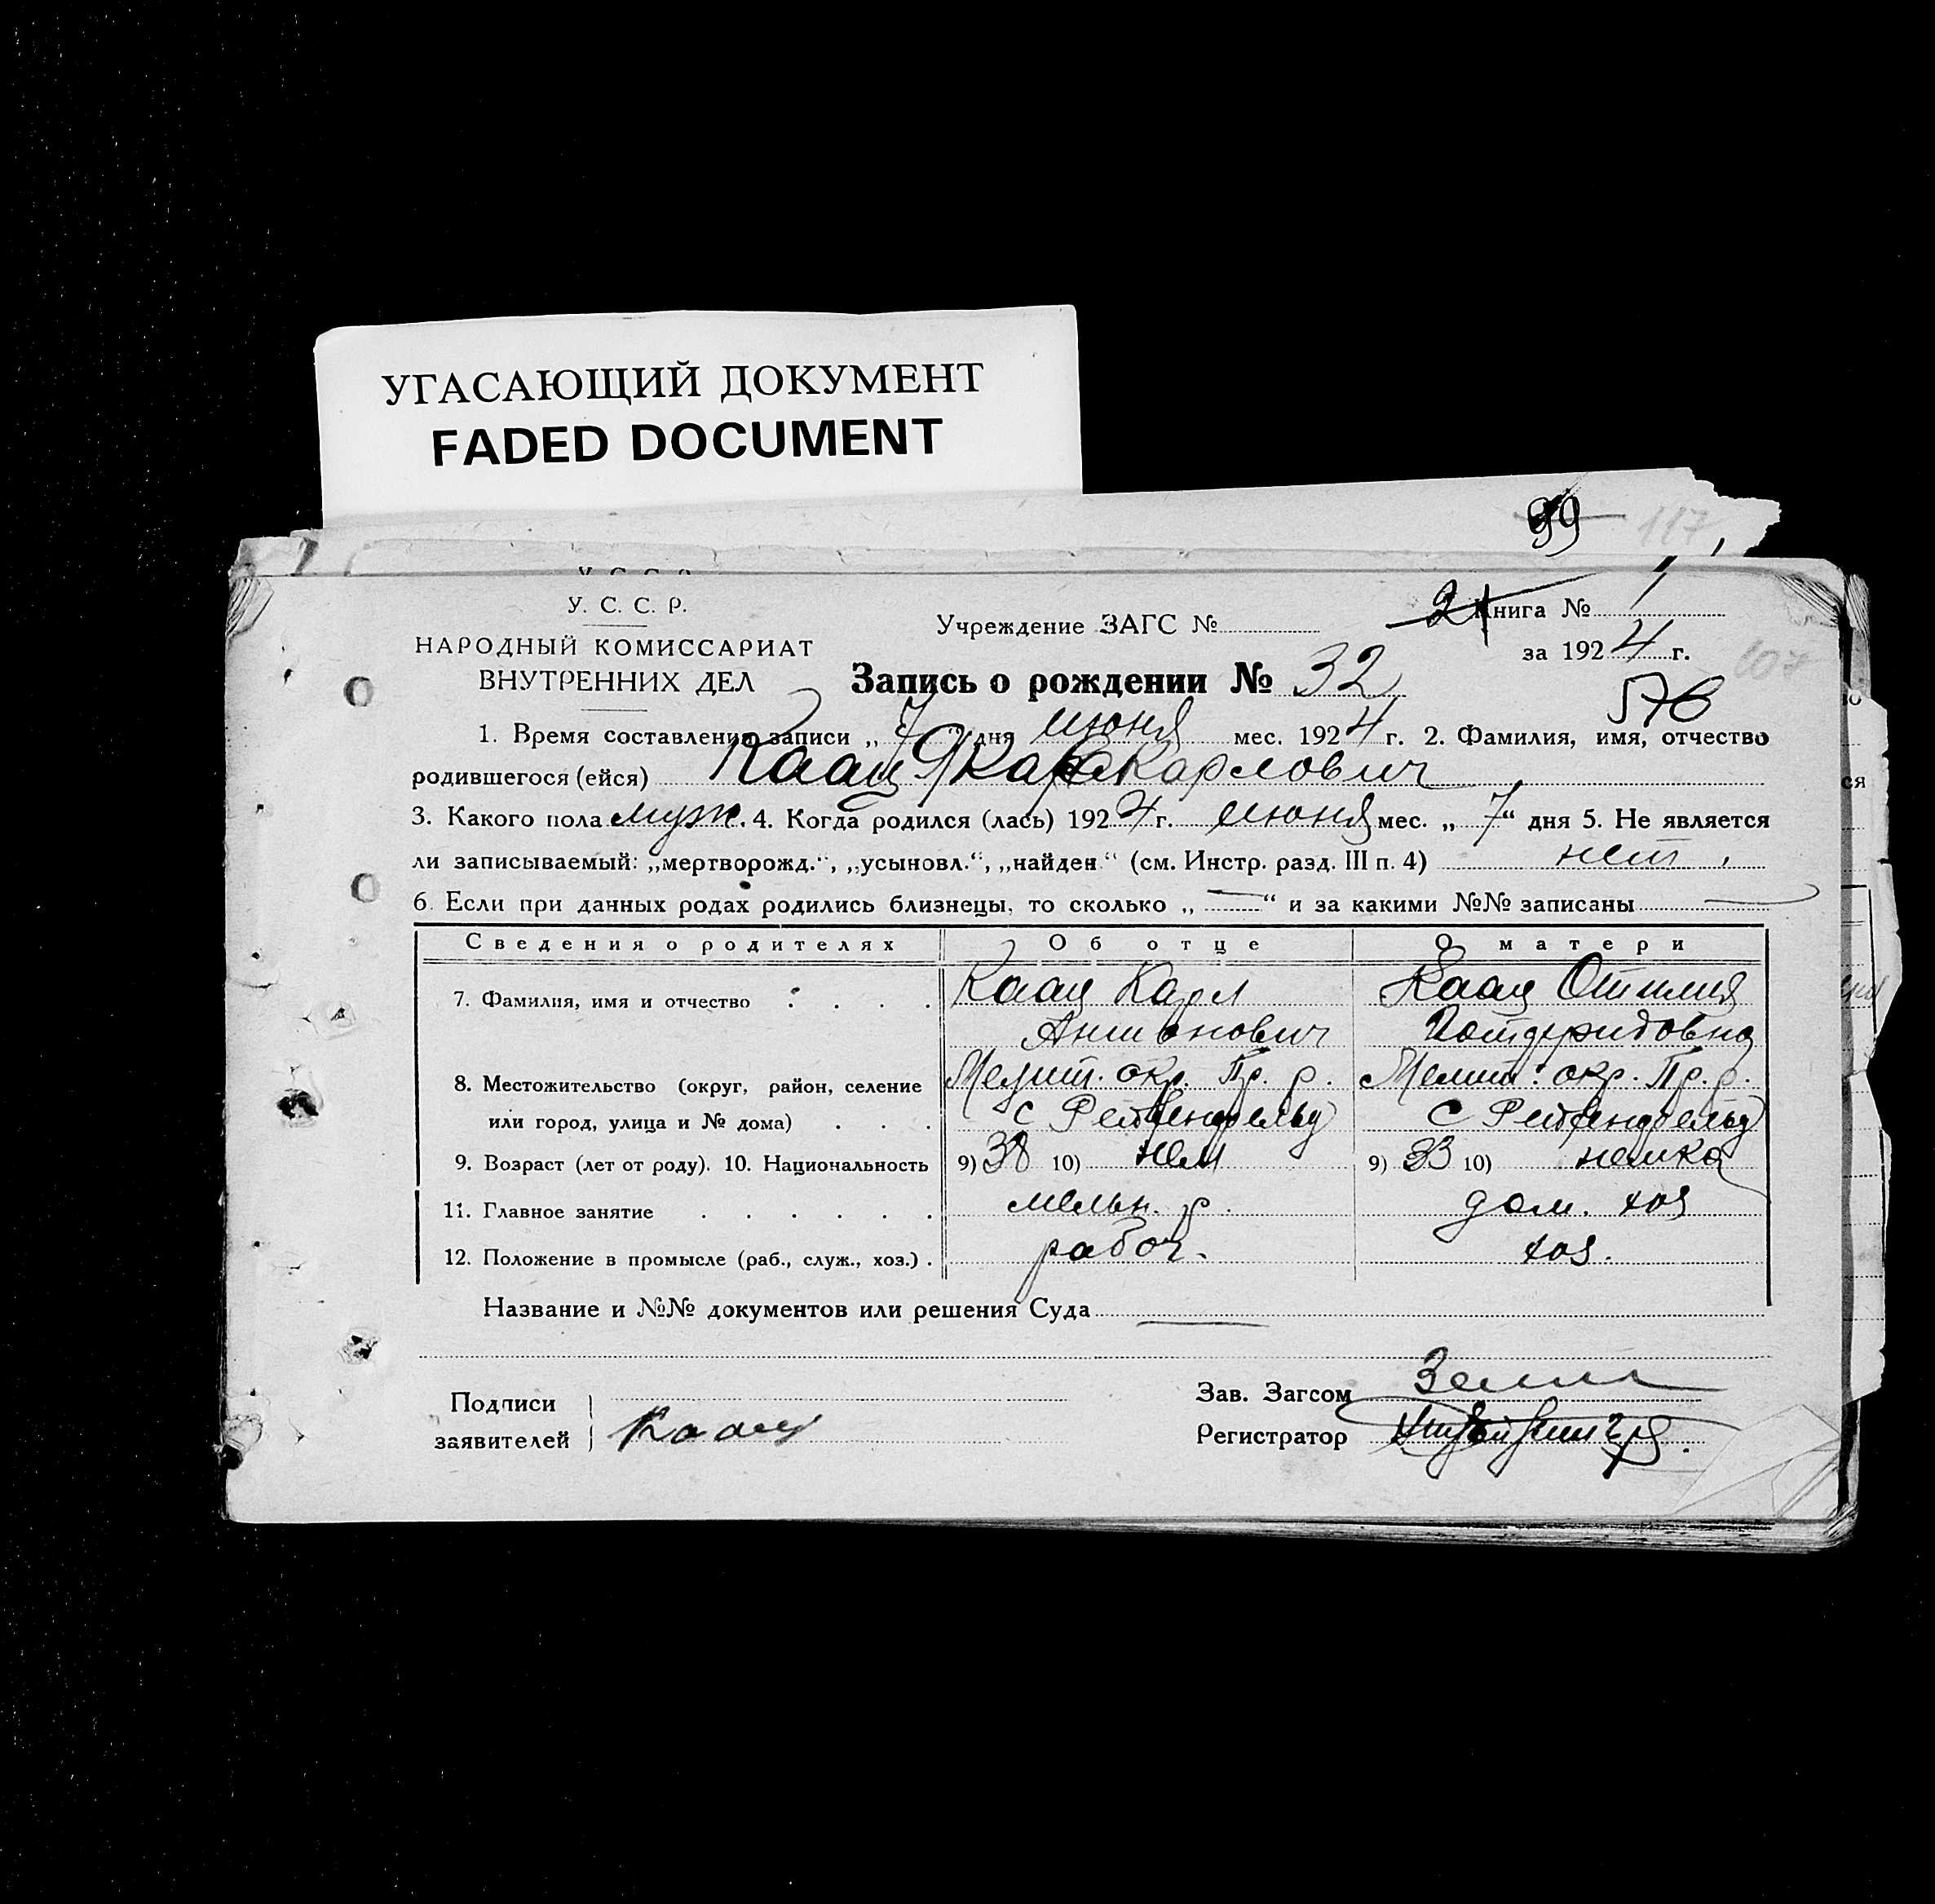 УГАСАЮЩИЙ ДОКУМЕНТ
FADED DOCUMENT
99
117
У. С. С. Р.
НАРОДНЫЙ КОМИССАРИАТ
ВНУТРЕННИХ ДЕЛ
Учреждение ЗАГС №
21
Книга № 1
за 1924 г.
607
Запись о рождении № 32
576
1. Время составления записи „7“ дня июня мес. 1924 г. 2. Фамилия, имя, отчество
родившегося (ейся) Каац Карл Карлович
3. Какого пола муж. 4. Когда родился (лась) 1924 г. июня мес. „7“ дня 5. Не является
ли записываемый: „мертворожд.“, „усыновл.“, „найден“ (см. Инстр. разд. III п. 4) нет.
6. Если при данных родах родились близнецы, то сколько „—“ и за какими №№ записаны —
Сведения о родителях Об отце О матери
7. Фамилия, имя и отчество . . . . Каац Карл Каац Отилия
Антонович Готфридовна
8. Местожительство (округ, район, селение Мелит. окр. Пр. р. Мелит. окр. Пр. р.
или город, улица и № дома) . . . с Рейхенфельд с Рейхенфельд
9. Возраст (лет от роду). 10. Национальность 9) 38 10) нем 9) 33 10) немка
11. Главное занятие . . . . . . мельн. р. дом. хоз
12. Положение в промысле (раб., служ., хоз.) . рабоч. хоз.
Название и №№ документов или решения Суда —
Подписи
заявителей Каац
Зав. Загсом
Регистратор